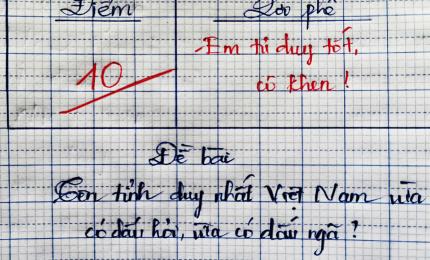 Điểm
Lời phê
10
Em tư duy tốt,
có khen !
Đề bài
Tên tỉnh duy nhất Việt Nam vừa
có dấu hỏi, vừa có dấu ngã ?